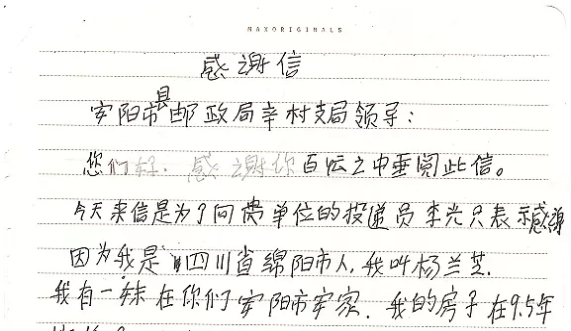 MAXORIGINALS
感谢信
安阳市县邮政局辛村支局领导：
您们好．感谢你百忙之中垂阅此信。
今天来信是为了向贵单位的投递员李光只表示感谢
因为我是四川省绵阳市人，我叫杨兰芝．
我有一妹在你们安阳市安家．我的房子在9.5年